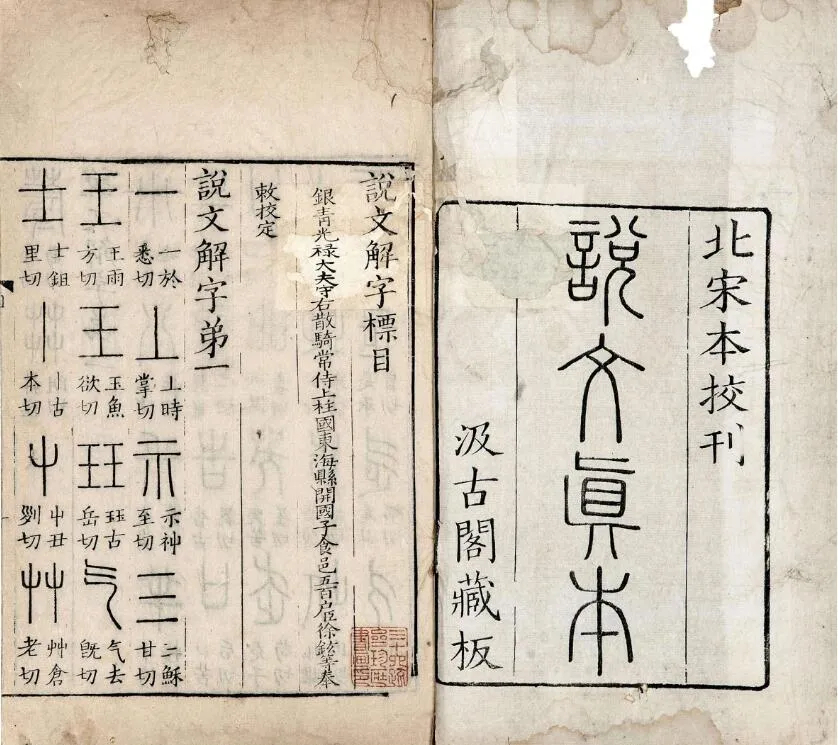 北宋本挍刊
說文眞本
汲古閣藏板
說文解字標目
銀青光祿大夫守右散騎常侍上柱國東海縣開國子食邑五百戶臣徐鉉等奉
敕校定
說文解字弟一
一 一於悉切 丄 上時掌切 示 示神至切 三 三穌甘切
王 王雨方切 王 玉魚欲切 玨 珏古岳切 气 气去旣切
士 士鉏里切 丨 丨古本切 屮 屮丑列切 艸 艸倉老切